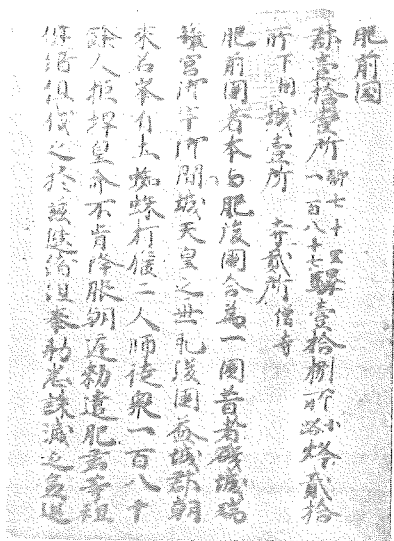 肥前國
郡壹拾壹所 郷七十里一百八十七 驛壹拾捌所小路烽貳拾
所下國 城壹所 寺貳所僧寺
肥前國者本与肥後國合為一國昔者磯城瑞
籬宮御宇御間城天皇之世肥後國益城郡朝
来名峯有土蜘蛛打猴二人師徒衆一百八十
餘人拒捍皇命不肯降服朝廷勅遣肥君等祖
健緒組伐之於茲健緒組奉勅悉誅滅之兼巡